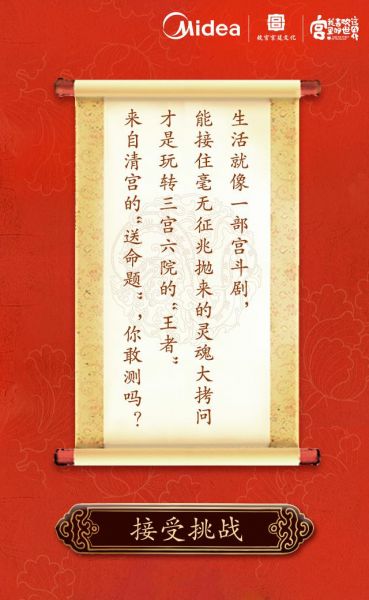 Midea
故宫宫廷文化
生活就像一部宫斗剧，
能接住毫无征兆抛来的灵魂大拷问
才是玩转三宫六院的“王者”
来自清宫的“送命题”，你敢测吗？
接受挑战